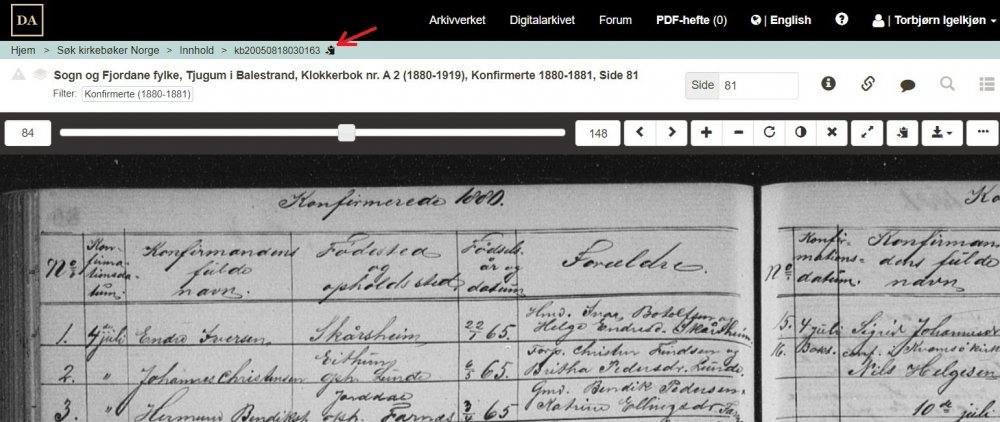 DA
Arkivverket Digitalarkivet Forum PDF-hefte (0) | English | Torbjørn Igelkjøn
Hjem > Søk kirkebøker Norge > Innhold > kb20050818030163
Sogn og Fjordane fylke, Tjugum i Balestrand, Klokkerbok nr. A 2 (1880-1919), Konfirmerte 1880-1881, Side 81
Filter: Konfirmerte (1880-1881)
Side 81
84 148
Konfirmerede 1880.
No Konfirmationsdatum. Konfirmandens fulde navn. Fødested og opholdssted Fødselsår og datum Forældre.
No Konfirmationsdatum.
1. 4 juli Endre Iversen Skårsheim 22/7 65. Hmd. Ivar Botolfsen og
Helge Endresd. Skårsheim
2. " Johannes Christensen Eithun
oph. Lunde 6/3 65. Forp. Christen
Britha Pedersdr. Lunde
3. " Hermund Bendikst. Farnæs 3/4 65 Gmd. Bendik Pedersen
Katrine Ellingsdr
15. 4 juli Sigrid
16. Boks. conf. i
Nils Helgesen
10de juli